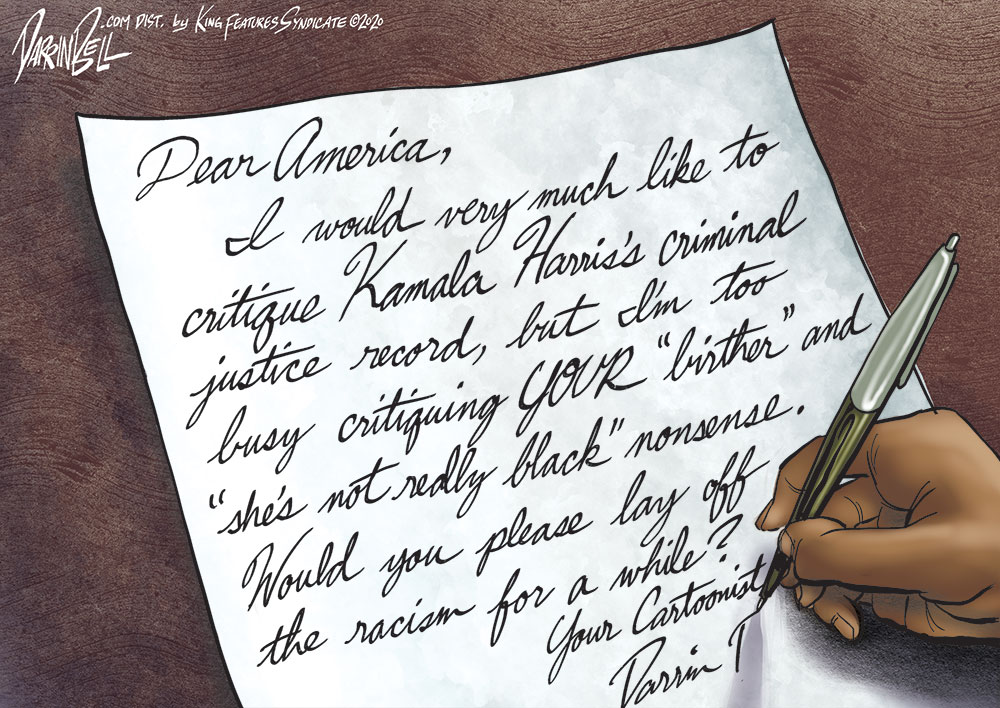 DARRINBELL.COM DIST. by KING FEATURES SYNDICATE ©2020
Dear America,
I would very much like to
critique Kamala Harris's criminal
justice record, but I'm too
busy critiquing YOUR "birther" and
"she's not really black" nonsense.
Would you please lay off
the racism for a while?
Your Cartoonist
Darrin